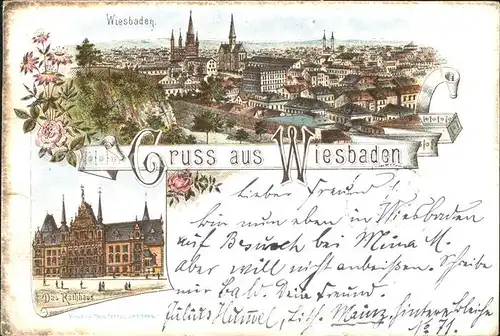 Wiesbaden.
Gruss aus Wiesbaden
Lieber Freund!
Bin nun eben in Wiesbaden
auf Besuch bei Mina M.
Aber will nicht anbeißen. Schreibe
mir bald. Dein Freund
Julius Hummel, Lith. Mainz, hintere Bleiche
No 71
Das Rathhaus